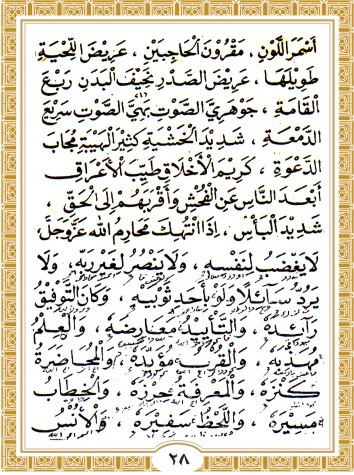 أَسْمَرَ اللَّوْنِ ، مَقْرُونَ الْحَاجِبَيْنِ ، عَرِيضَ اللِّحْيَةِ
طَوِيلَهَا ، عَرِيضَ الصَّدْرِ نَحِيْفَ الْبَدَنِ رَبِيْعَ
الْقَامَةِ ، جَوْهَرِيَّ الصَّوْتِ بَهِيَّ الصَّوْتِ سَرِيْعَ
الدَّمْعَةِ ، شَدِيْدَ الْخَشْيَةِ كَثِيْرَ الْهَيْبَةِ مُجَابَ
الدَّعْوَةِ ، كَرِيْمَ الْأَخْلَاقِ طَيِّبَ الْأَعْرَاقِ
أَبْعَدَ النَّاسِ عَنِ الْفُحْشِ وَأَقْرَبَهُمْ إِلَى الْحَقِّ ،
شَدِيْدَ الْبَأْسِ ، إِذَا انْتُهِكَ مَحَارِمُ اللهِ عَزَّ وَجَلَّ ،
لَا يَغْضَبُ لِنَفْسِهِ ، وَلَا يَنْصُرُ لِغَيْرِ رَبِّهِ ، وَلَا
يَرُدُّ سَآئِلًا وَلَوْ بِأَحَدِ ثَوْبَيْهِ ، وَكَانَ التَّوْفِيْقُ
رَآئِدَهُ ، وَالتَّأْيِيْدُ مُعَارِضَهُ ، وَالْعِلْمُ
مُهَذِّبَهُ ، وَالْقُرْبُ مُؤَيِّدَهُ ، وَالْمُحَاضَرَةُ
كَنْزَهُ ، وَالْمَعْرِفَةُ حِرْزَهُ ، وَالْخِطَابُ
مَسِيْرَهُ ، وَاللَّحْظُ سَفِيْرَهُ ، وَالْأُنْسُ
٢٨